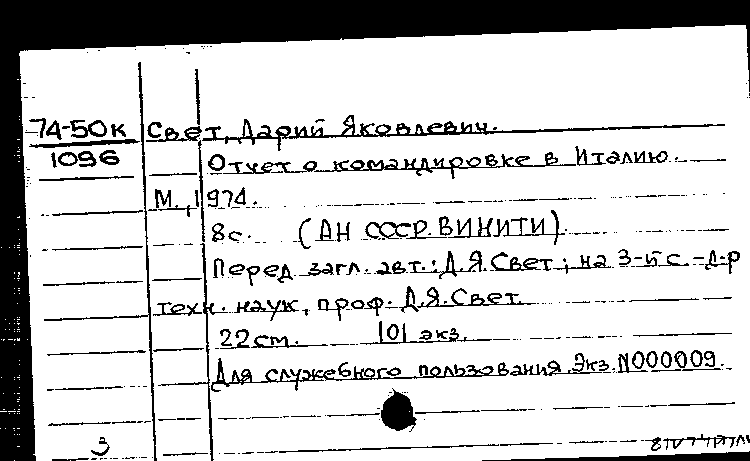 74-50к Свет, Дарий Яковлевич.
1096 Отчет о командировке в Италию.
М., 1974.
8с. (АН СССР. ВИНИТИ).
Перед загл. авт.: Д.Я.Свет; на 3-й с. - д-р
техн. наук, проф. Д.Я.Свет.
22см. 101 экз.
Для служебного пользования. Экз. N000009.
3